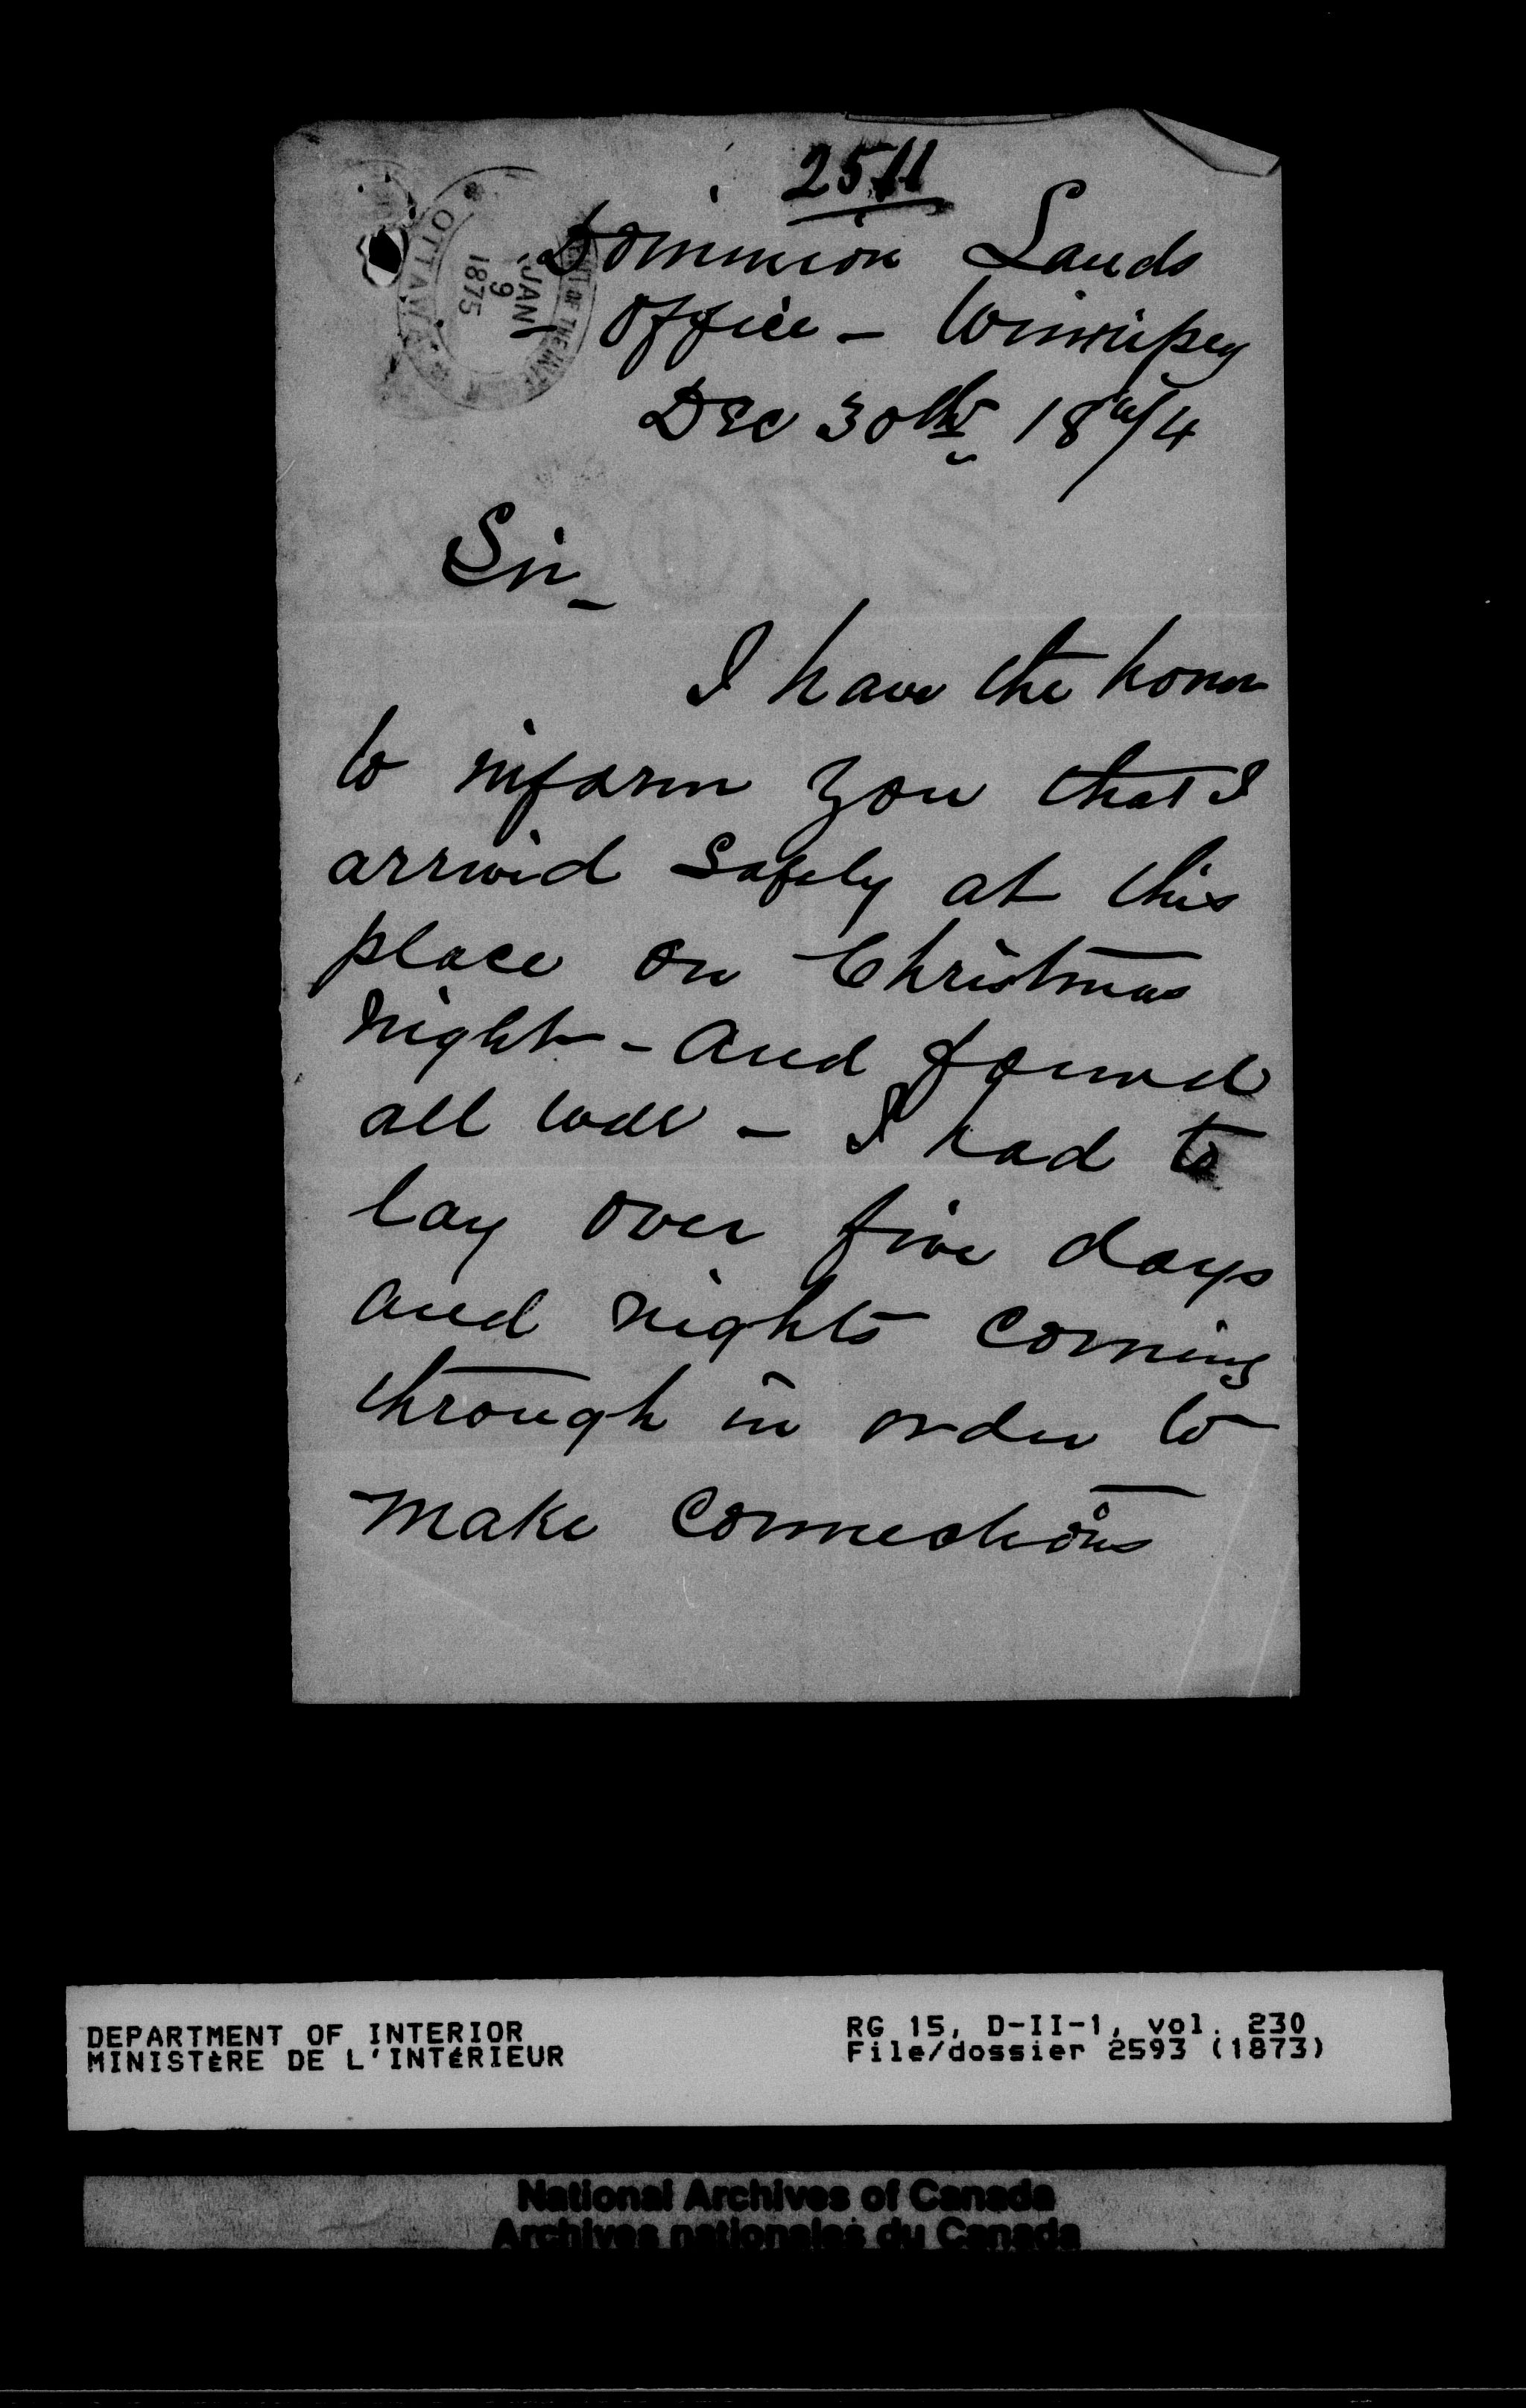 2511
Dominion Lands
- Office - Winnipeg
Dec 30th 1874
OTTAWA
JAN
9
1875
Sir_
I have the honor
to inform you that I
arrived safely at this
place on Christmas
night - and found
all well - I had to
lay over five days
and nights coming
through in order to
make connections
DEPARTMENT OF INTERIOR
MINISTÈRE DE L'INTÉRIEUR
RG 15, D-II-1, vol. 230
File/dossier 2593 (1873)
National Archives of Canada
Archives nationales du Canada